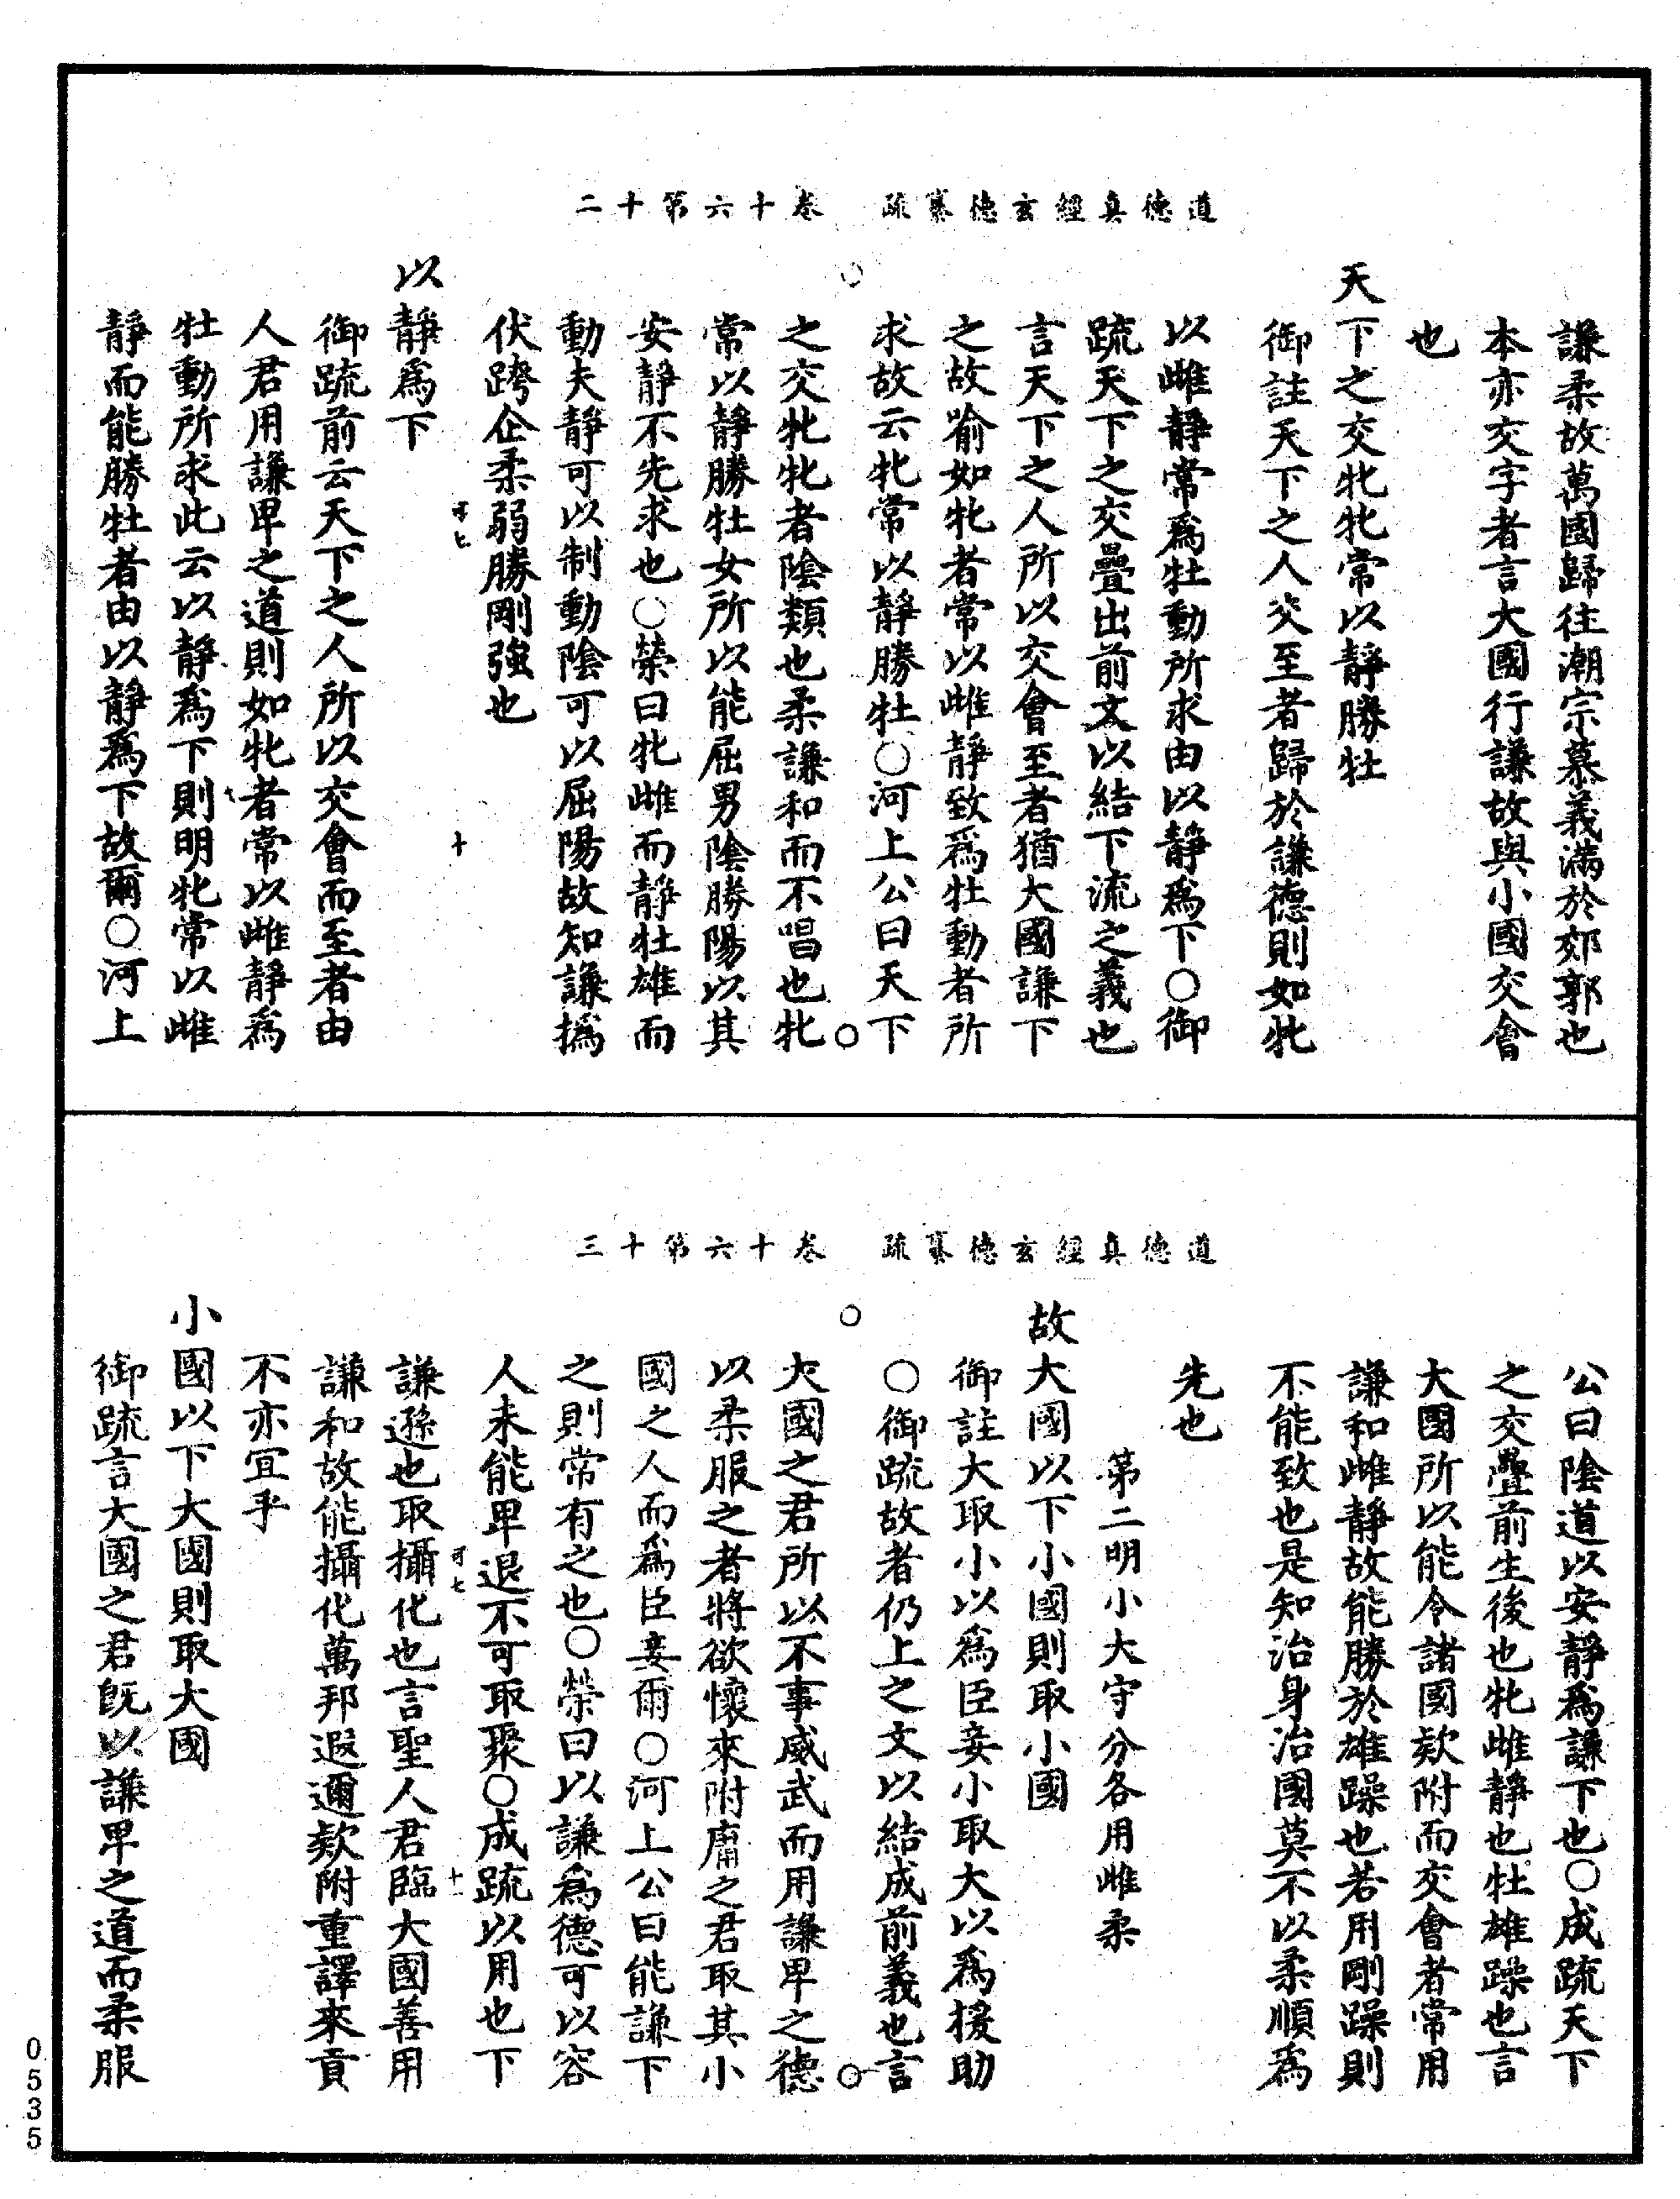 道德真經玄德纂疏　卷十六第十二
謙柔故萬國歸往潮宗慕義满於郊郭也
本亦交字者言大國行謙故與小國交會
也
天下之交牝牝常以靜勝牡
御註天下之人交至者歸於謙德則如牝
以雌靜常爲牡動所求由以靜爲下○御
疏天下之交疊出前文以結下流之義也
言天下之人所以交會至者猶大國謙下
之故喻如牝者常以雌靜致爲牡動者所
求故云牝常以靜勝牡○河上公曰天下
之交牝牝者陰類也柔謙和而不唱也牝
常以靜勝牡女所以能屈男陰勝陽以其
安靜不先求也○榮曰牝雌而靜牡雄而
動夫靜可以制動陰可以屈陽故知謙撝
伏跨企柔弱勝剛強也
可七　十
以靜爲下
御疏前云天下之人所以交會而至者由
人君用謙卑之道則如牝者常以雌靜爲
牡動所求此云以靜爲下則明牝常以雌
靜而能勝牡者由以靜爲下故爾○河上
道德真經玄德纂疏　卷十六第十三
公曰陰道以安靜爲謙下也○成疏天下
之交疊前生後也牝雌靜也牡雄躁也言
大國所以能令諸國欵附而交會者常用
謙和雌靜故能勝於雄躁也若用剛躁則
不能致也是知治身治國莫不以柔順爲
先也
第二明小大守分各用雌柔
故大國以下小國則取小國
御註大取小以爲臣妾小取大以爲援助
○御疏故者仍上之文以結成前義也言
大國之君所以不事威武而用謙卑之德
以柔服之者將欲懷來附庸之君取其小
國之人而爲臣妾爾○河上公曰能謙下
之則常有之也○榮曰以謙爲德可以容
人未能卑退不可取聚○成疏以用也下
可七　十一
謙遜也取攝化也言聖人君臨大國善用
謙和故能攝化萬邦遐邇欵附重譯來貢
不亦宜乎
小國以下大國則取大國
御疏言大國之君旣以謙卑之道而柔服
0535